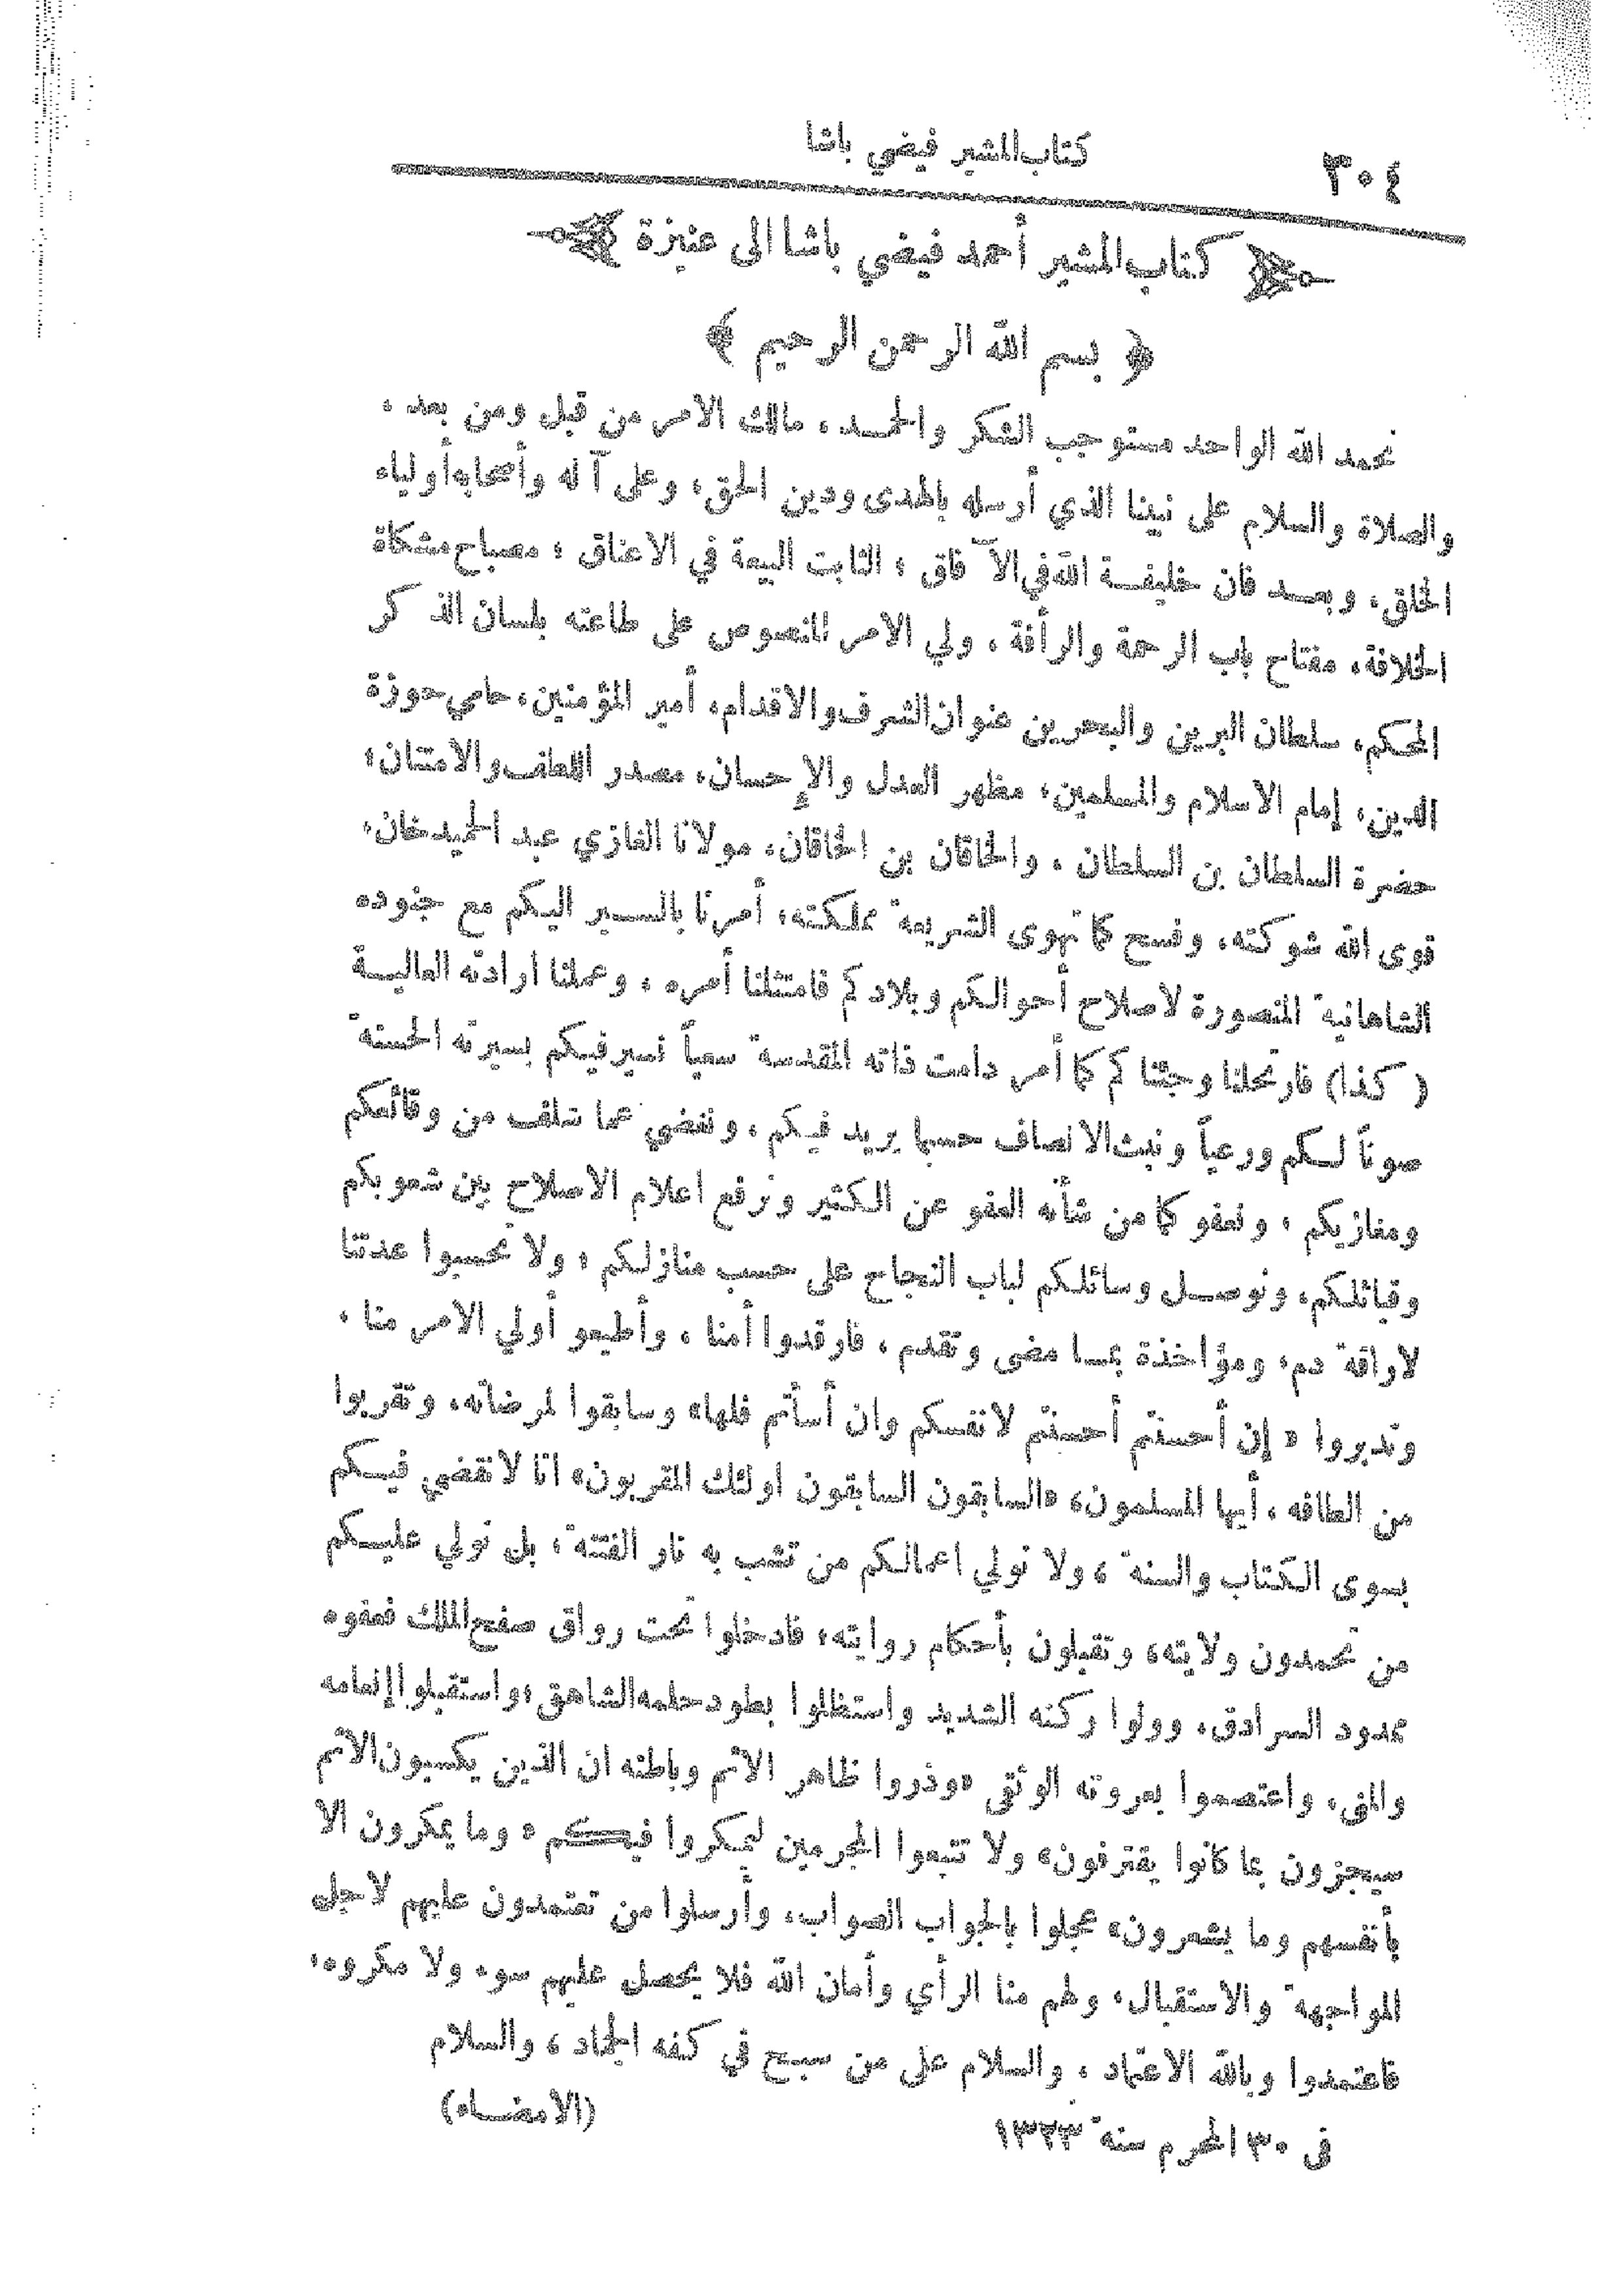 ٣٠٤
كتاب المشير فيضي باشا
كتاب المشير أحمد فيضي باشا الى عنيزة
﴿ بسم الله الرحمن الرحيم ﴾
نحمد الله الواحد مستوجب الشكر والحمد، مالك الامر من قبل ومن بعد،
والصلاة والسلام على نبينا الذي أرسله بالهدى ودين الحق، وعلى آله وأصحابه أولياء
الخلق، وبعد فان خليفة الله في الآفاق، الثابت البيعة في الاعناق، مصباح مشكاة
الخلافة، مفتاح باب الرحمة والرأفة، ولي الامر المنصوص على طاعته بلسان الذكر
المحكم، سلطان البرين والبحرين عنوان الشرف والاقدام، أمير المؤمنين، حامي حوزة
الدين، إمام الاسلام والمسلمين، مظهر العدل والإحسان، مصدر اللطف والامتنان،
حضرة السلطان بن السلطان، والخاقان بن الخاقان، مولانا الغازي عبد الحميد خان،
قوى الله شوكته، وفسح كما تهوى الشريعة مملكته، أمرنا بالسير اليكم مع جنوده
الشاهانية المنصورة لاصلاح أحوالكم وبلادكم فامتثلنا أمره، وعملنا ارادته العالية
(كذا) فارتحلنا وجئناكم كما أمر دامت ذاته المقدسة سعياً نسير فيكم بسيرته الحسنة
صوناً لكم ورعياً ونبث الانصاف حسبما يريد فيكم، ونغضي عما سلف من وقائعكم
ومغازيكم، ونعفو كما من شأنه العفو عن الكثير ونرفع اعلام الاصلاح بين شعوبكم
وقبائلكم، ونوصل وسائلكم لباب النجاح على حسب منازلكم، ولا تحسبوا عدتنا
لاراقة دم، ومؤاخذة بما مضى وتقدم، فارقدوا أمنا، وأطيعو أولي الامر منا،
وتدبروا «إن أحسنتم أحسنتم لانفسكم وان أسأتم فلها» وسابقوا لمرضاته، وتقربوا
من الطافه، أيها المسلمون، «السابقون السابقون اولئك المقربون» انا لا نقضي فيكم
بسوى الكتاب والسنة، ولا نولي اعمالكم من تشب به نار الفتنة، بل نولي عليكم
من تحمدون ولايته، وتقبلون بأحكام روايته، فادخلوا تحت رواق صفح الملك فعفوه
ممدود السرادق، وولوا ركنه الشديد واستظلوا بطود حلمه الشاهق، واستقبلوا إنعامه
والمنى، واعتصموا بعروته الوثقى «وذروا ظاهر الاثم وباطنه ان الذين يكسبون الاثم
سيجزون بما كانوا يقترفون» ولا تتبعوا المجرمين ليمكروا فيكم «وما يمكرون الا
بأنفسهم وما يشعرون» عجلوا بالجواب الصواب، وأرسلوا من تعتمدون عليهم لاجل
المواجهة والاستقبال، ولهم منا الرأي وأمان الله فلا يحصل عليهم سوء ولا مكروه،
فاعتمدوا وبالله الاعتماد، والسلام على من سبح في كفه الجماد، والسلام
في ٣٠ المحرم سنة ١٣٢٣ (الامضاء)